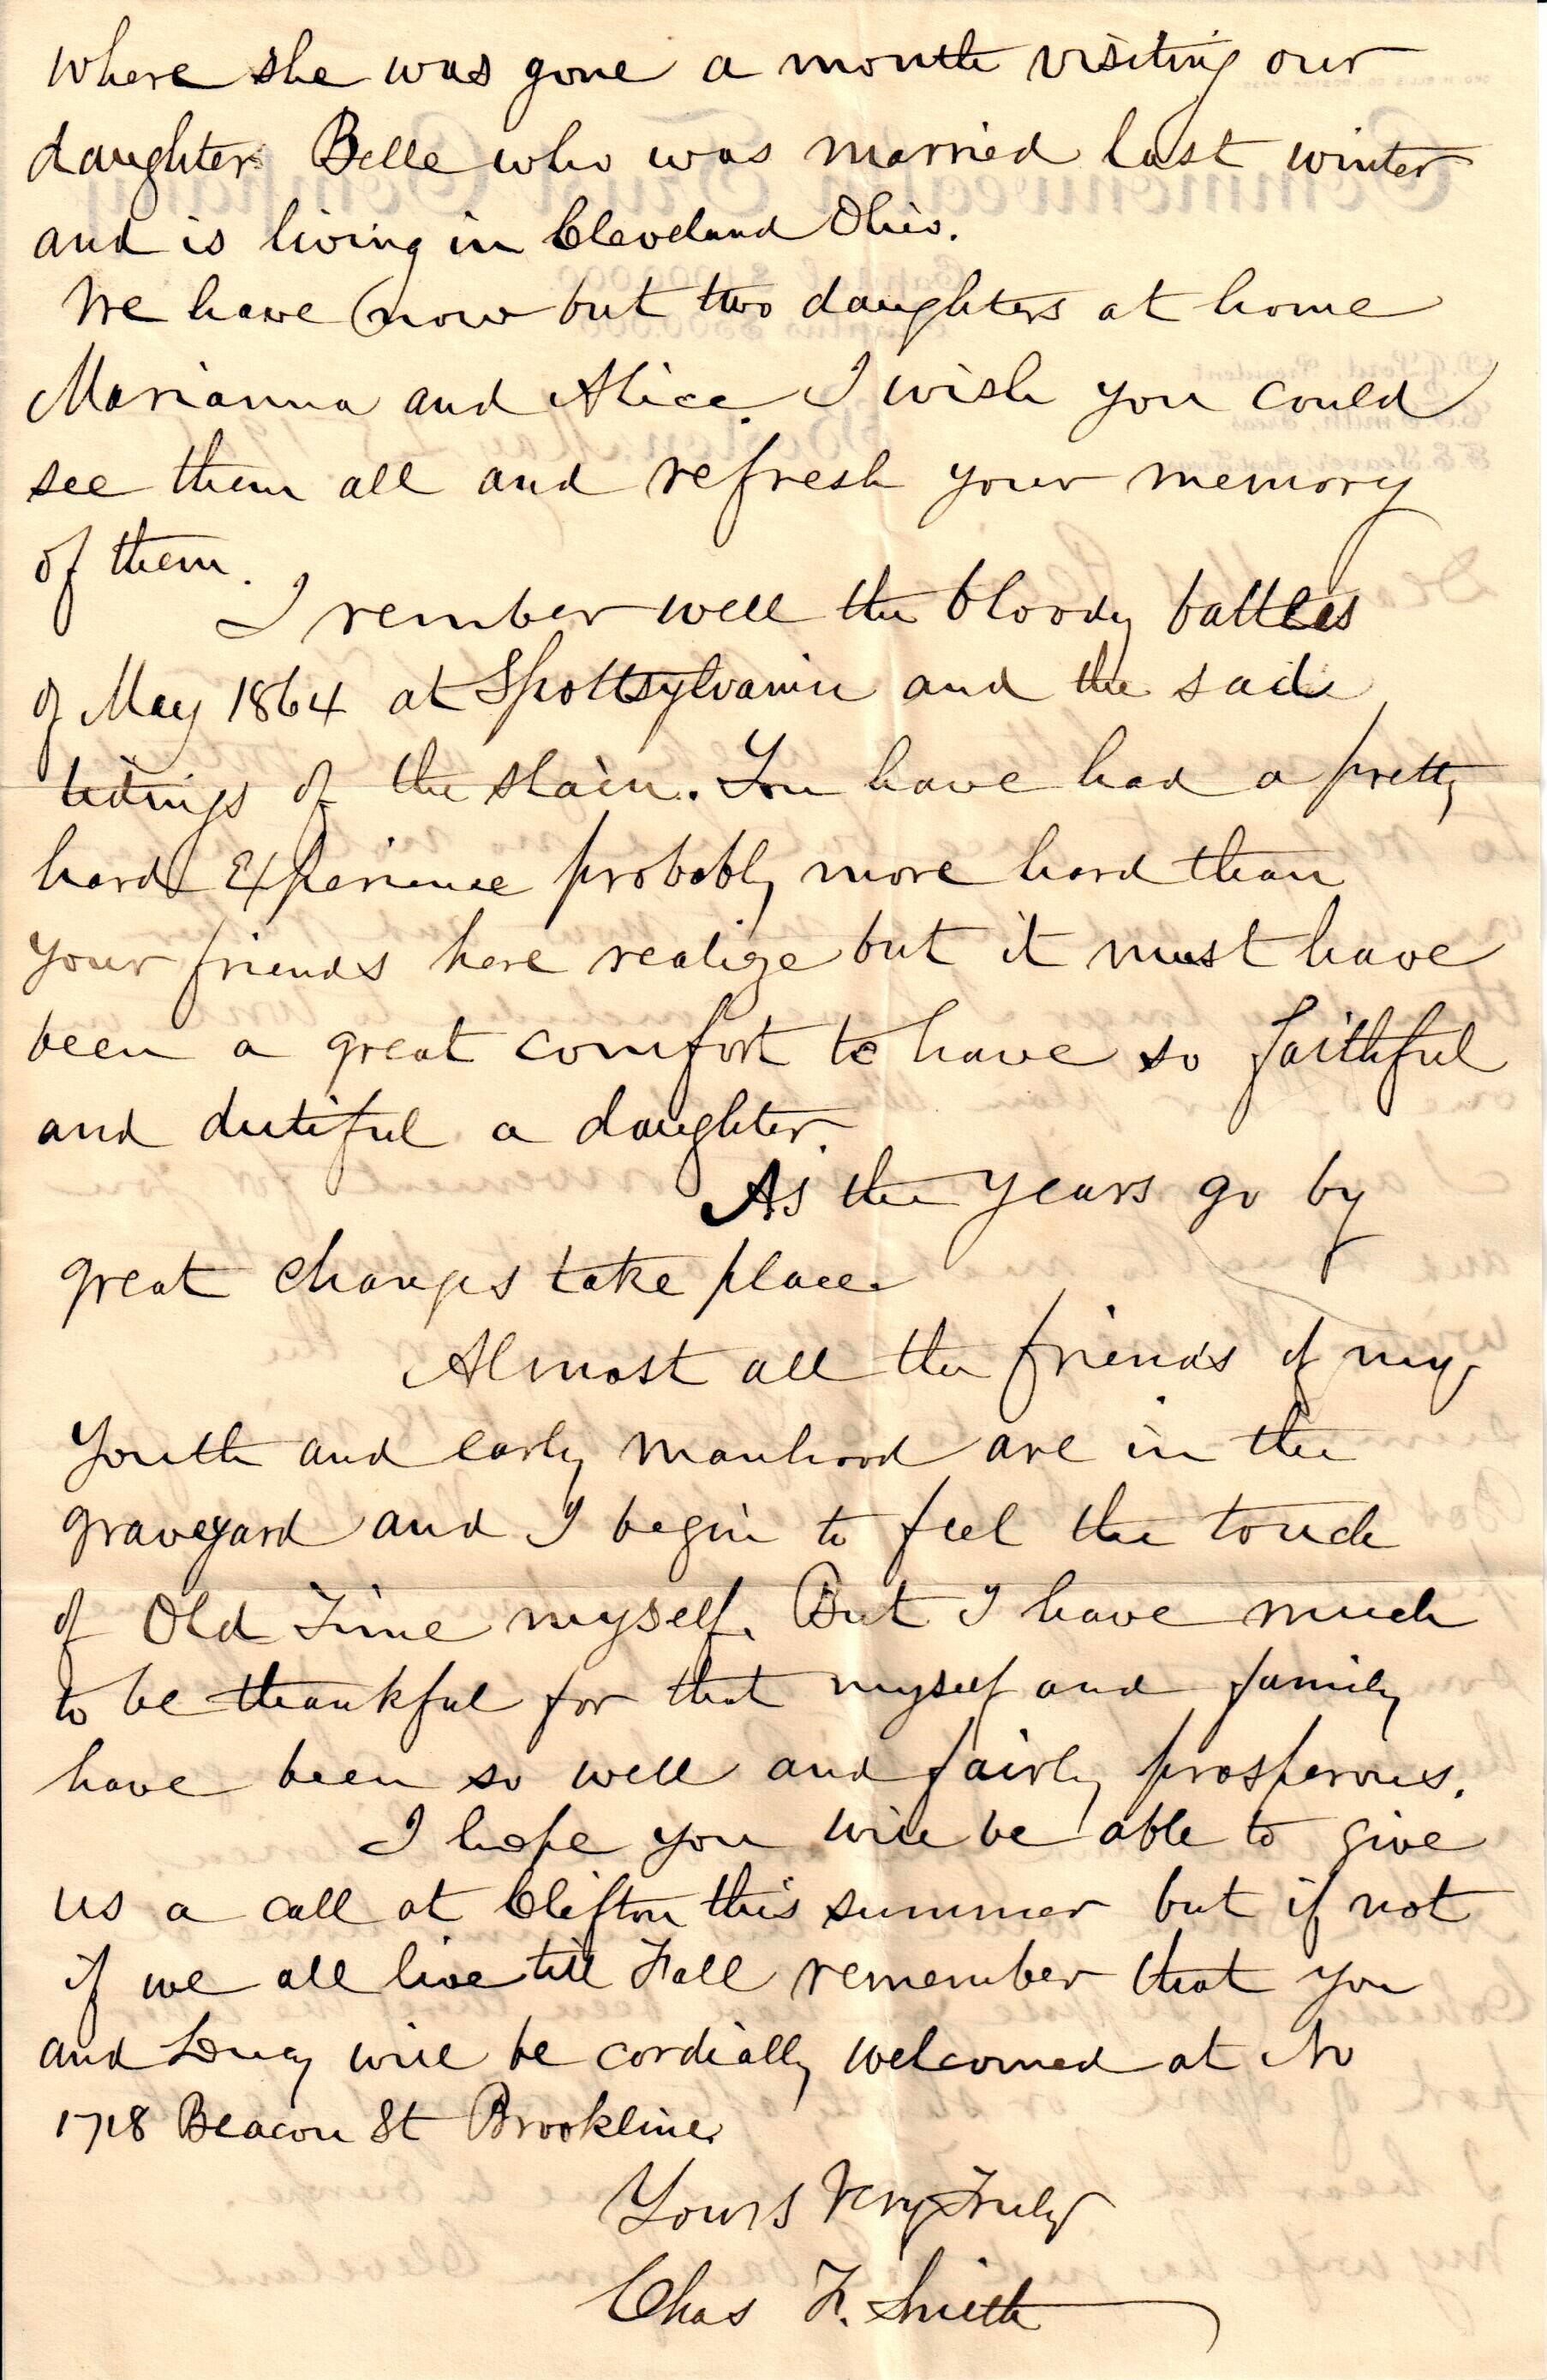 where she was gone a month visiting our
daughter Belle who was married last winter
and is living in Cleveland Ohio.
We have now but two daughters at home
Marianna and Alice. I wish you could
see them all and refresh your memory
of them.
I rember well the bloody battles
of May 1864 at Spottsylvania and the sad
tidings of the slain. You have had a pretty
hard Experience probably more hard than
your friends here realize but it must have
been a great comfort to have so faithful
and dutiful a daughter.
As the years go by
great changes take place.
Almost all the friends of my
youth and early manhood are in the
graveyard and I begin to feel the touch
of Old Time myself. But I have much
to be thankful for that myself and family
have been so well and fairly prosperous.
I hope you will be able to give
us a call at Clifton this summer but if not
if we all live till Fall remember that you
and Lucy will be cordially welcomed at No
1718 Beacon St Brookline.
Yours Very Truly
Chas F. Smith